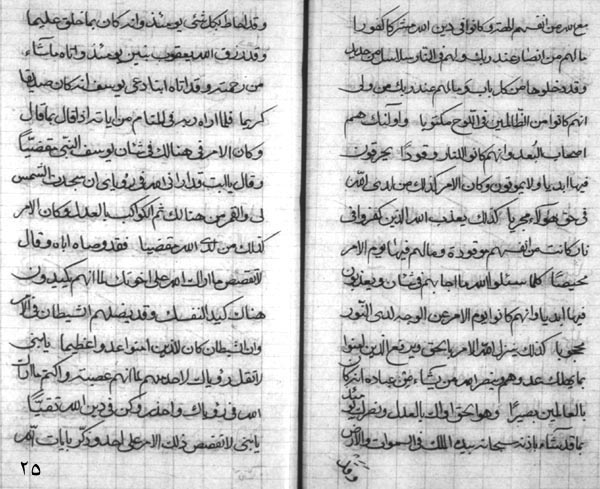 مع الله من انفسهم وكانوا في دين الله مشركا كفورا
مالهم من انصار عند ربك ولهم في النار سلاسل من حديد
وقد دخلوها من كل باب ومالهم عند ربك من ولى
انهم كانوا من الظالمين في اللوح مكتوبا واولئك هم
اصحاب البعد وانهم كانوا للنار وقودا يحرقون
فيها ابديا ولا يموتون وكان الامر كذلك من لدى الله
في حق هؤلاء مجريا كذلك يعذب الله الذين كفروا في
نار كانت من انفسهم موقودة ومالهم فيها يوم الامر
محيصا كلما سئلوا الله ما اجابهم في شان ويعذبون
فيها ابديا وانهم كانوا يوم الامر عن الوجه لدى النور
محجوبا كذلك ينزل الله الامر بالحق ويرفع الذين امنوا
بما يهلك عدوهم وينصر الله من يشاء من عباده انه كان
بالعالمين بصيرا وهو الحق بالعدل
بما قد يشاء باذنه سبحانه بيده الملك في السموات والارض
وقد احاط بكل شئ يومئذ وانه كان بما خلق عليما
وقد رزق الله يعقوب بنين يومئذ واتاه ما شاء
من رحمته وقد اتاه ابنا دعى يوسف انه كان صديقا
كريما فلما اراه ربه في المنام من اياته اذا قال بما قال
وكان الامر في هنالك في شان يوسف النبي مقضيا
وقال يا ابت قد ارانى الله في رؤياى ان سجدت الشمس
لى والقمر من هنالك ثم الكواكب بالعدل وكان الامر
كذلك من لدى الله مقضيا فقد وصاه اباه وقال
لا تقصص ما اراك الله على اخوتك لما انهم يكيدون
هنالك كيدا لنفسك وقد يضلهم الشيطان في الامر
وان الشيطان كان للذين امنوا عدوا عظيما يا بنى
لا تقل رؤياك لاحد منهم بما انهم عصبة واكتم ما اراك
الله في رؤياك واحذر وكن في دين الله تقيا
يا بنى لا تقصص ذلك الامر على احد وذكر بايات الله
٢٥